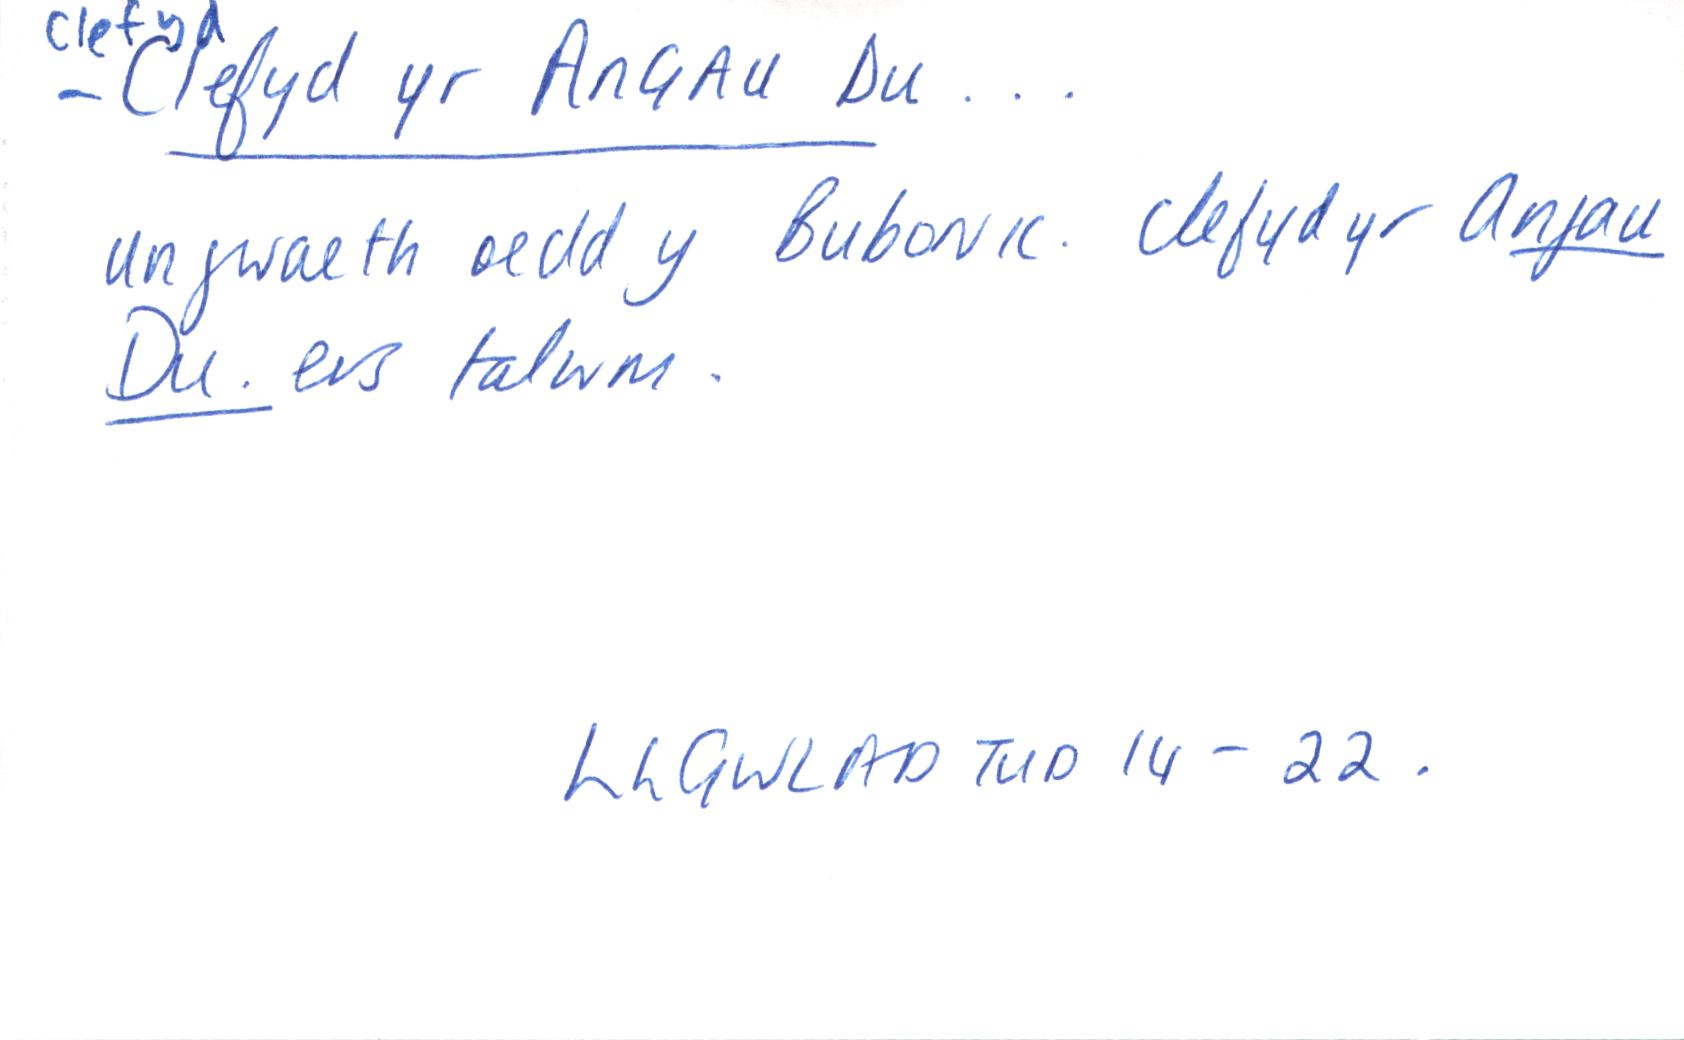 clefyd
- Clefyd yr AnGAU Du...
un gwaeth oedd y Bubonic. Clefyd yr Angau
Du. ers talwm.
LLGWLAD TUD 14-22.